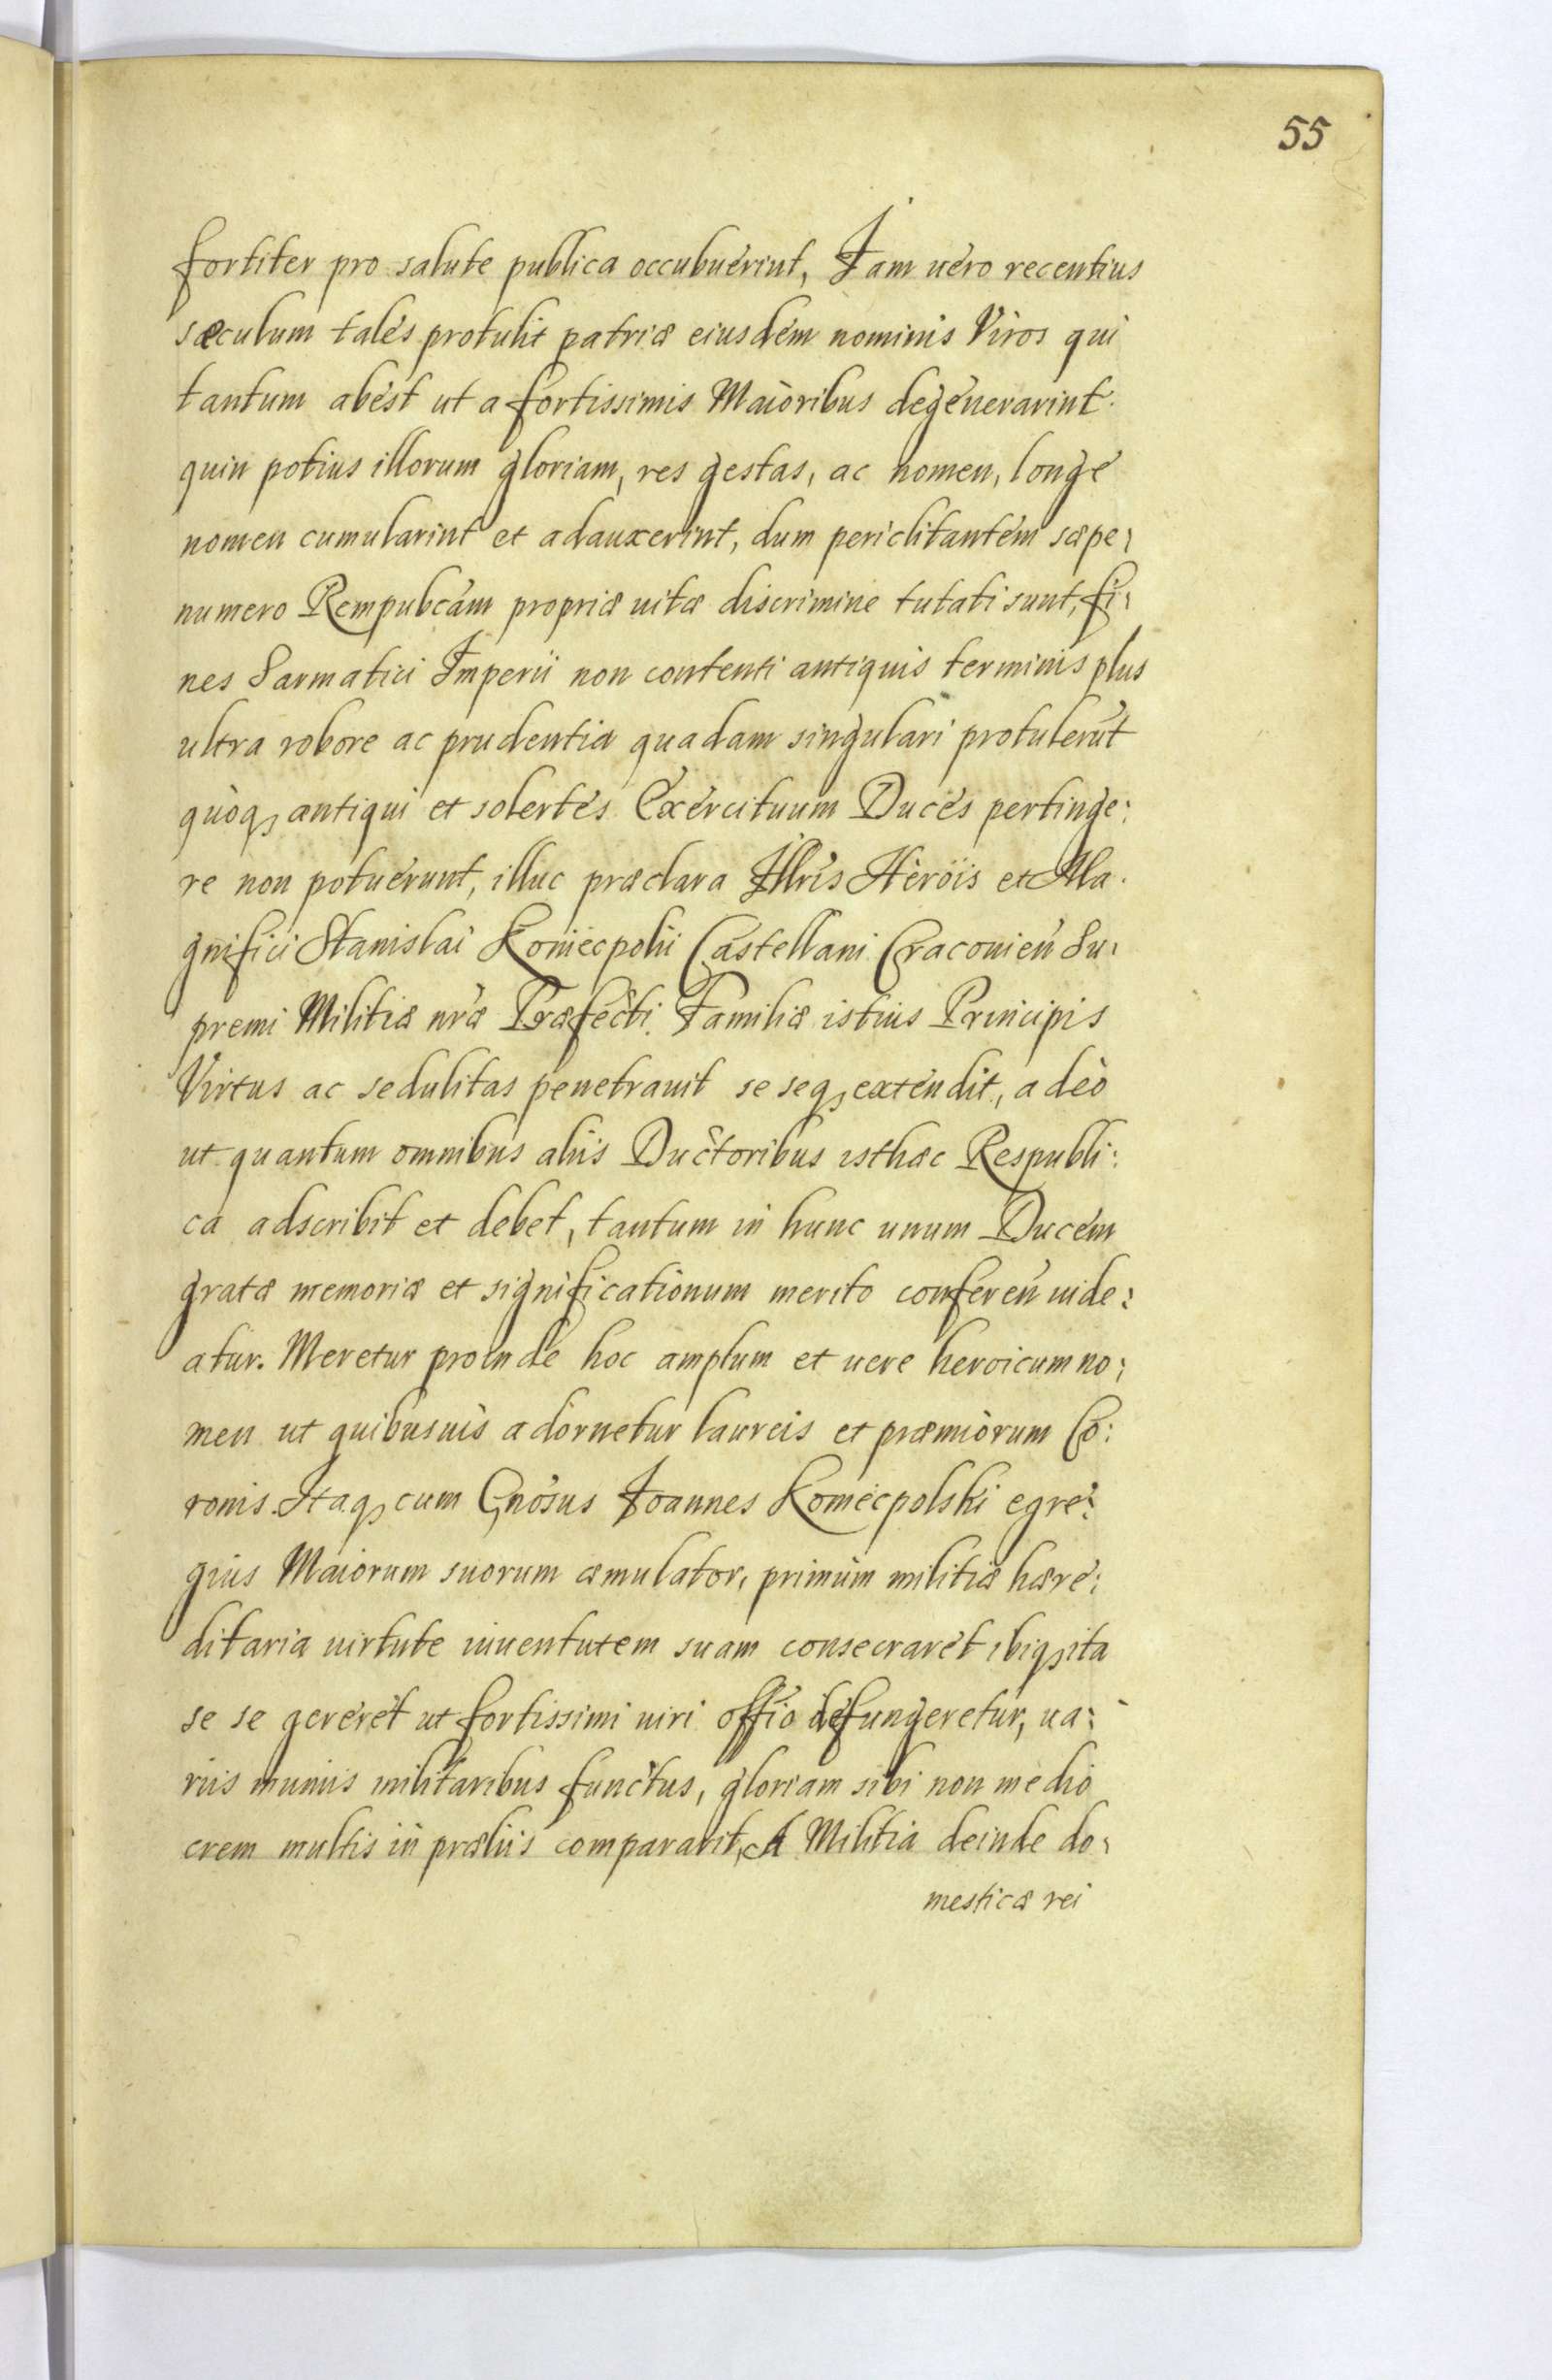 55
fortiter pro salute publica occubuerint, Iam uero recentius
sæculum tales protulit patriæ eiusdem nominis Viros qui
tantum abest ut a fortissimis Maioribus degenerarint
quin potius illorum gloriam, res gestas, ac nomen, longe
nomen cumularint et adauxerint, dum periclitantem sæpe:
numero Rempubcam propriæ uitæ discrimine tutati sunt, fi:
nes Sarmatici Imperii non contenti antiquis terminis plus
ultra robore ac prudentia quadam singulari protulerūt
quoqꝫ antiqui et solertes Exercituum Duces pertinge:
re non potuerunt, illuc præclara Illris Herois et Ma:
gnifici Stanislai Koniecpolii Castellani Cracovień Su:
premi Militiæ nræ Præfecti Familiæ istius Principis
Virtus ac sedulitas penetrauit se seqꝫ extendit, adeò
ut quantum omnibus aliis Ductoribus isthæc Respubli:
ca adscribit et debet, tantum in hunc unum Ducem
gratæ memoriæ et significationum merito confereń uide:
atur. Meretur proinde hoc amplum et uere heroicum no:
men ut quibusuis adornetur laureis et præmiorum Co:
ronis. Itaqꝫ cum Gnosus Ioannes Koniecpolski egre:
gius Maiorum suorum æmulator, primum militiæ hære:
ditaria uirtute iuuentutem suam consecraret ibiqꝫ ita
se se gereret ut fortissimi uiri offio defungeretur, ua:
riis muniis militaribus functus, gloriam sibi non medio
crem multis in præliis compararit, A Militia deinde do:
mesticæ rei